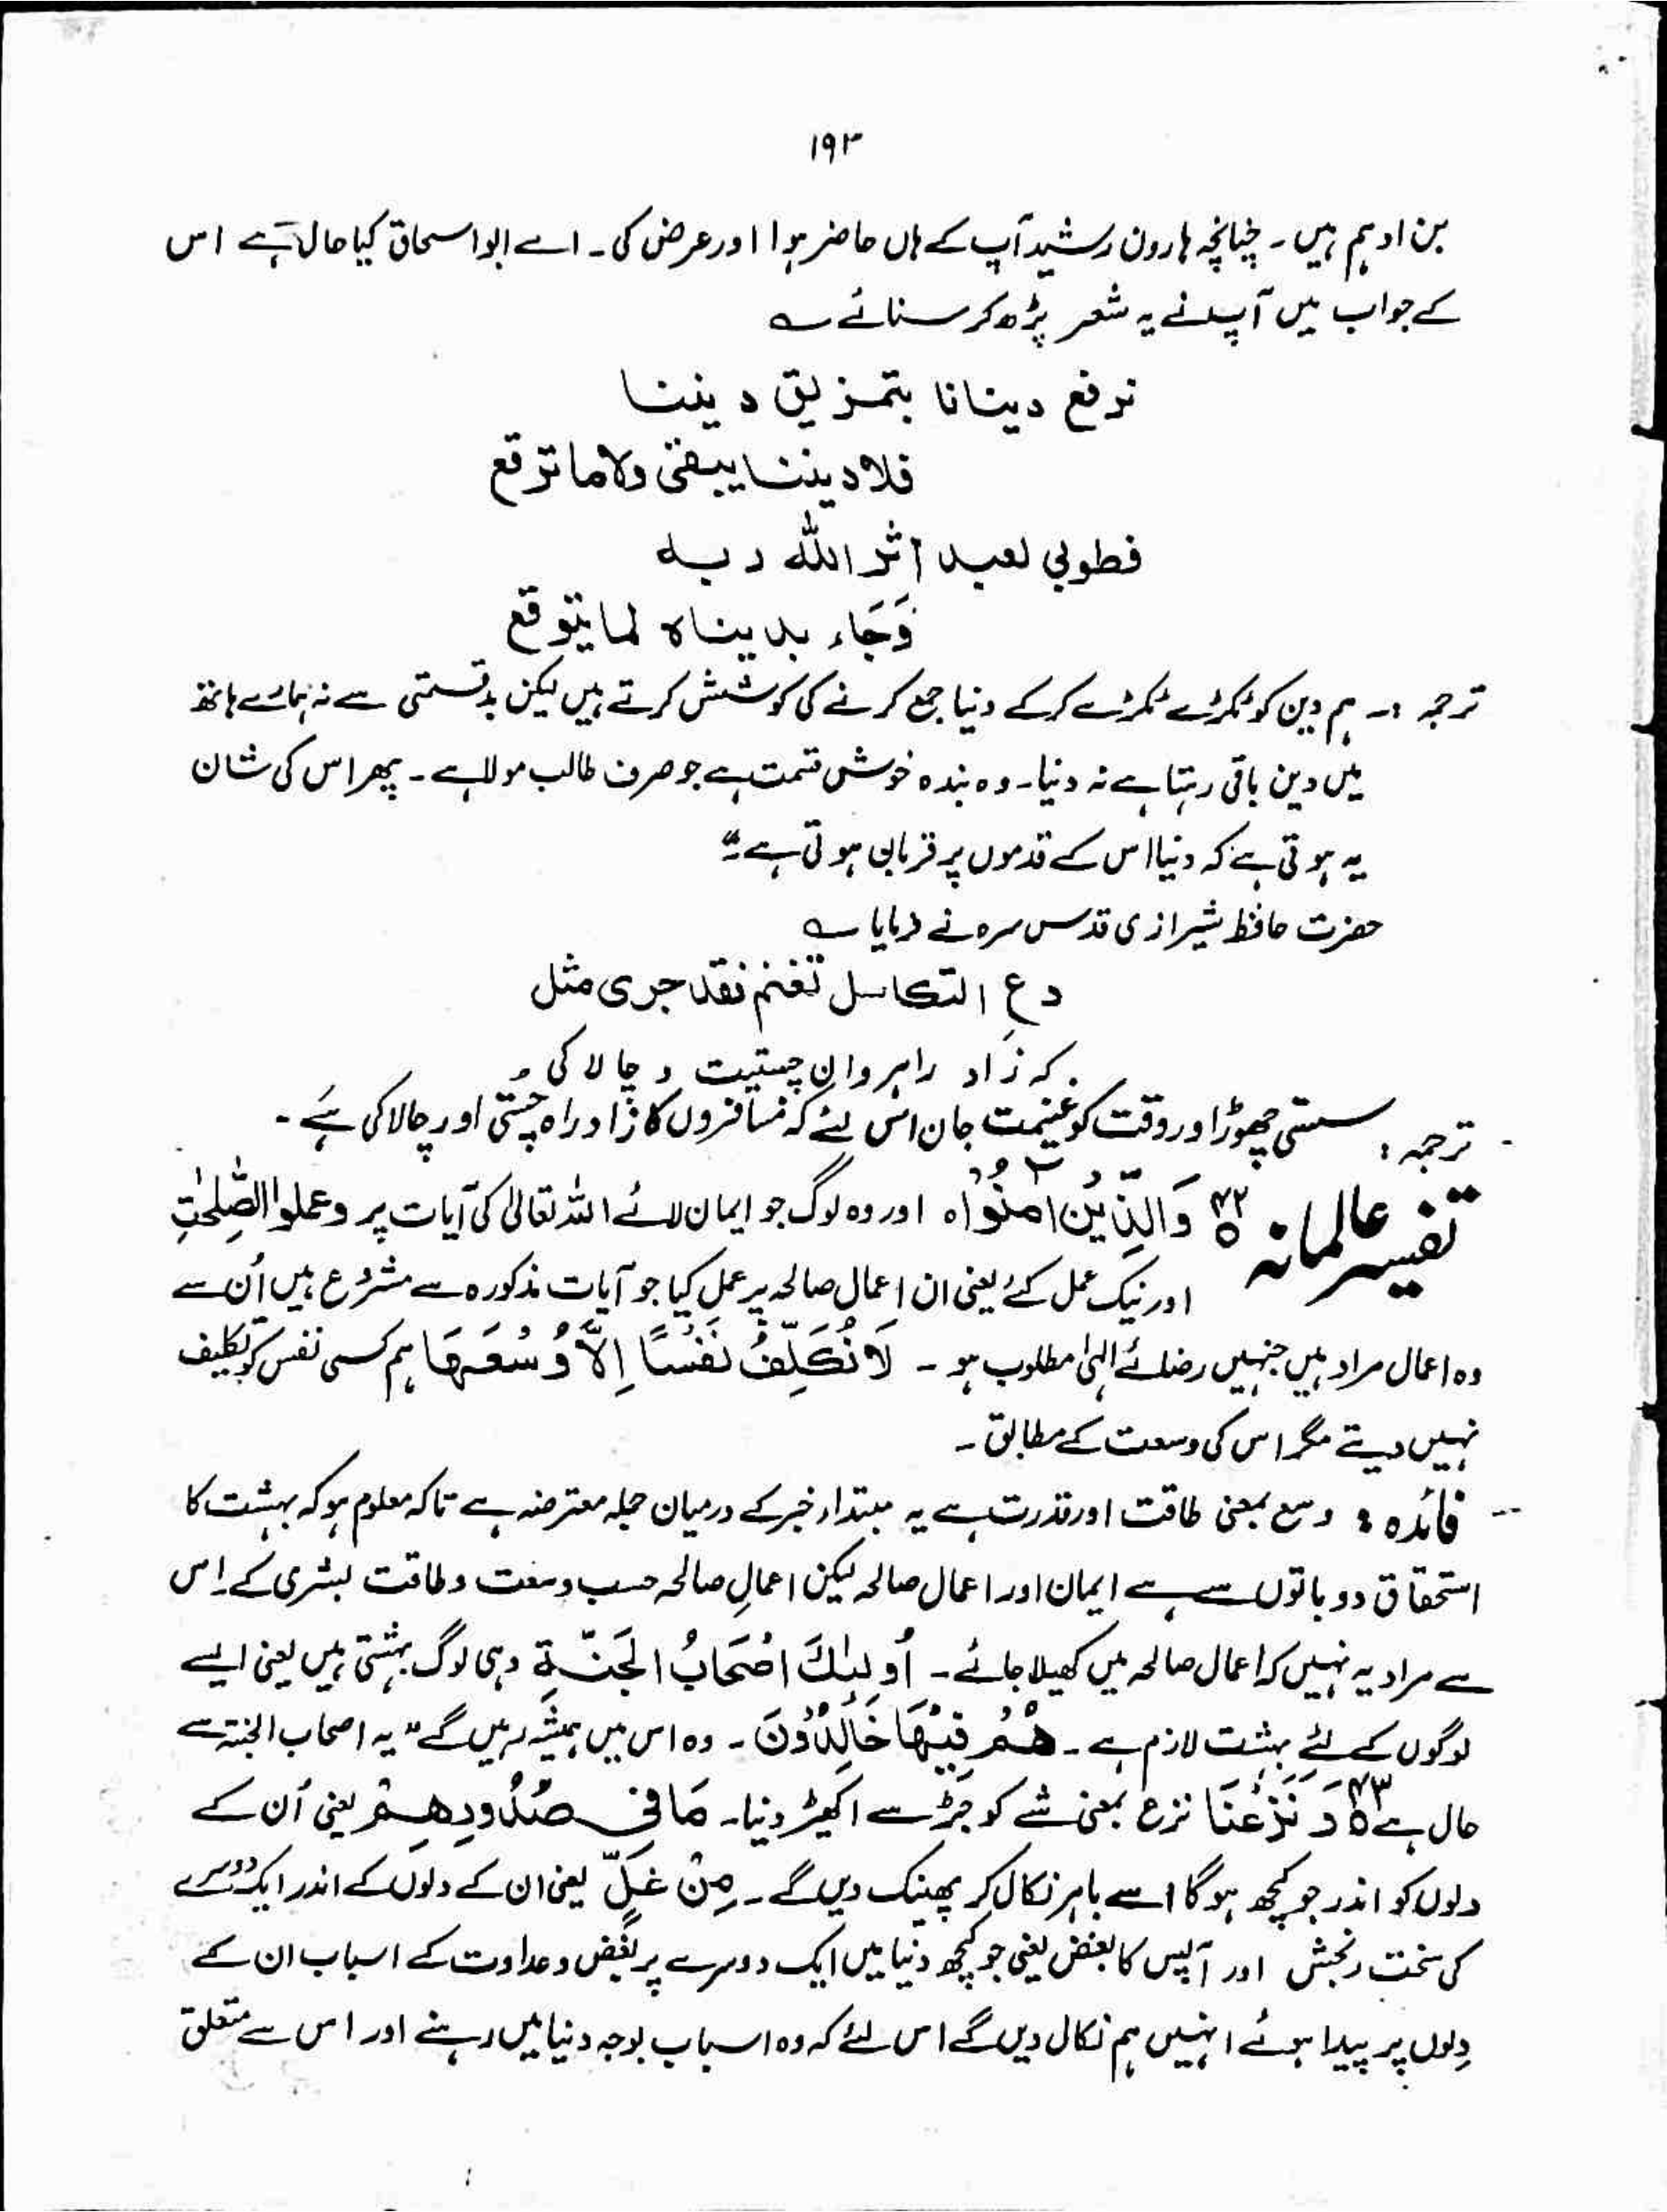 ۱۹۳
بن ادہم ہیں۔ چنانچہ ہارون رشید آپ کے ہاں حاضر ہوا اور عرض کی۔ اے ابواسحاق کیا حال ہے اس
کے جواب میں آپ نے یہ شعر پڑھ کر سنائے ؎
نرفع دینانا بتمزیق دیننا
فلا دیننا یبقی ولا ما نرقع
فطوبی لعبد اٰثر اللہ ربہ
وَجَاء بدیناہ لما یتوقع
ترجمہ :۔ ہم دین کو ٹکڑے ٹکڑے کرکے دنیا جمع کرنے کی کوشش کرتے ہیں لیکن بدقسمتی سے نہ ہمارے ہاتھ
میں دین باقی رہتا ہے نہ دنیا۔ وہ بندہ خوش قسمت ہے جو صرف طالب مولا ہے۔ پھر اس کی شان
یہ ہوتی ہے کہ دنیا اس کے قدموں پر قربان ہوتی ہے۔"
حضرت حافظ شیرازی قدس سرہ نے فرمایا ؎
دعِ التکاسل تغنم فقد جری مثل
کہ زاد راہروان چستیت و چالاکی
ترجمہ : سستی چھوڑ اور وقت کو غنیمت جان اس لئے کہ مسافروں کا زاد راہ چُستی اور چالاکی ہے۔
تفسیر عالمانہ ۴۲ وَالَّذِیْنَ اٰمَنُوْا ہ اور وہ لوگ جو ایمان لائے اللہ تعالیٰ کی آیات پر وعملوا الصّٰلِحٰتِ
اور نیک عمل کئے یعنی ان اعمال صالحہ پر عمل کیا جو آیات مذکورہ سے مشروع ہیں اُن سے
وہ اعمال مراد ہیں جنہیں رضائے الٰہی مطلوب ہو۔ لَا نُکَلِّفُ نَفْسًا اِلَّا وُسْعَهَا ہم کسی نفس کو تکلیف
نہیں دیتے مگر اس کی وسعت کے مطابق۔
فائدہ : وسع بمعنی طاقت اور قدرت ہے یہ مبتداء خبر کے درمیان جملہ معترضہ ہے تاکہ معلوم ہو کہ بہشت کا
استحقاق دو باتوں سے ہے ایمان اور اعمال صالحہ لیکن اعمالِ صالحہ حسب وسعت وطاقت بشری کے اِس
سے مراد یہ نہیں کہ اعمال صالحہ میں کھیلا جائے۔ اُولٰٓئِکَ اَصْحَابُ الْجَنَّةِ وہی لوگ بہشتی ہیں یعنی ایسے
لوگوں کے لئے بہشت لازم ہے۔ هُمْ فِیْهَا خٰلِدُوْنَ۔ وہ اس میں ہمیشہ رہیں گے" یہ اصحاب الجنۃ سے
حال ہے ۴۳ وَ نَزَعْنَا نزع بمعنی شے کو جَڑ سے اکھیڑ دینا۔ مَا فِیْ صُدُوْرِهِمْ یعنی اُن کے
دلوں کو اندر جو کچھ ہوگا اسے باہر نکال کر پھینک دیں گے۔ مِنْ غِلٍّ یعنی ان کے دلوں کے اندر ایک دوسرے
کی سخت رنجش اور آپس کا بغض یعنی جو کچھ دنیا میں ایک دوسرے پر بُغض وعداوت کے اسباب ان کے
دِلوں پر پیدا ہوئے انہیں ہم نکال دیں گے اس لئے کہ وہ اسباب بوجہ دنیا میں رہنے اور اس سے متعلق